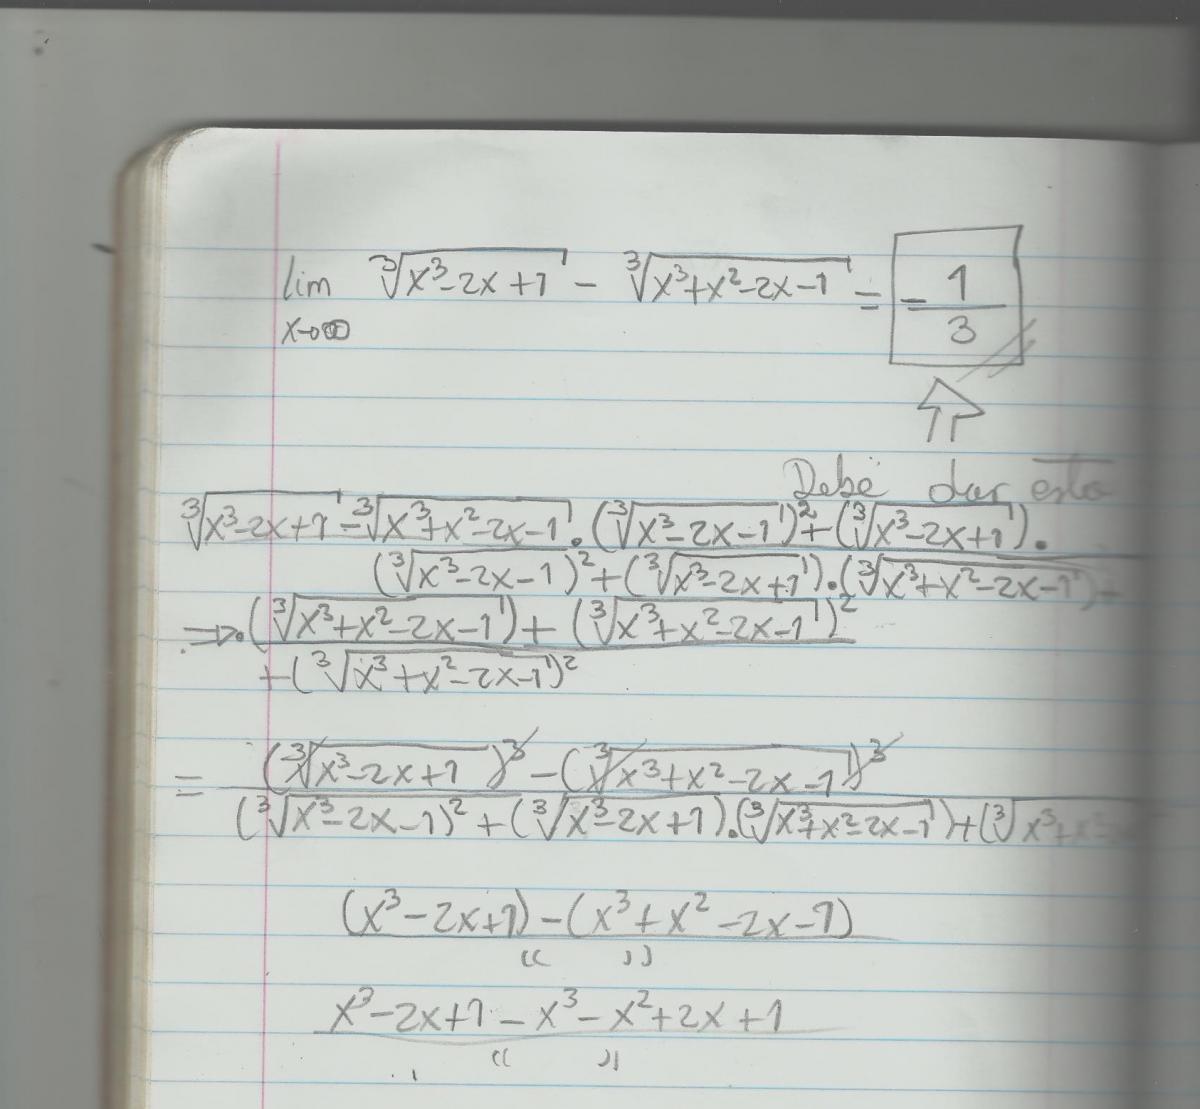 lim ∛(x³-2x+1) - ∛(x³+x²-2x-1) = -1/3
x→∞
Debe dar esto
∛(x³-2x+1) - ∛(x³+x²-2x-1) · (∛(x³-2x-1))² + (∛(x³-2x+1)) ·
(∛(x³-2x-1))² + (∛(x³-2x+1)) · (∛(x³+x²-2x-1)) +
⇒ · (∛(x³+x²-2x-1)) + (∛(x³+x²-2x-1))²
+ (∛(x³+x²-2x-1))²
= (∛(x³-2x+1))³ - (∛(x³+x²-2x-1))³
(∛(x³-2x-1))² + (∛(x³-2x+1)) · (∛(x³+x²-2x-1)) + (∛x³+
(x³-2x+1) - (x³+x²-2x-1)
" "
x³-2x+1-x³-x²+2x+1
" "